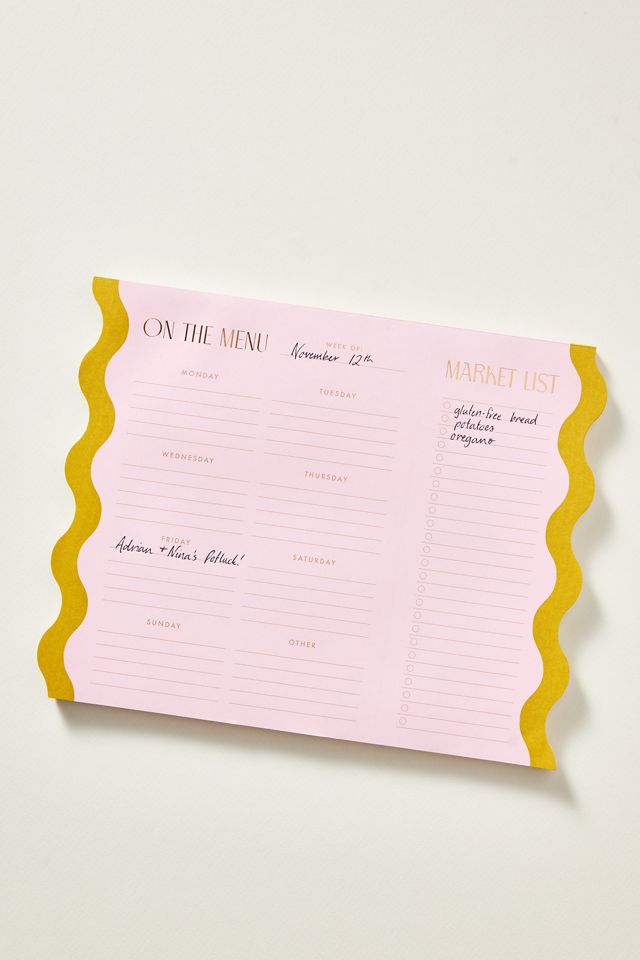 ON THE MENU
WEEK OF:
November 12th
MONDAY
TUESDAY
WEDNESDAY
THURSDAY
FRIDAY
Adrian + Nina's Potluck!
SATURDAY
SUNDAY
OTHER
MARKET LIST
gluten-free bread
potatoes
oregano